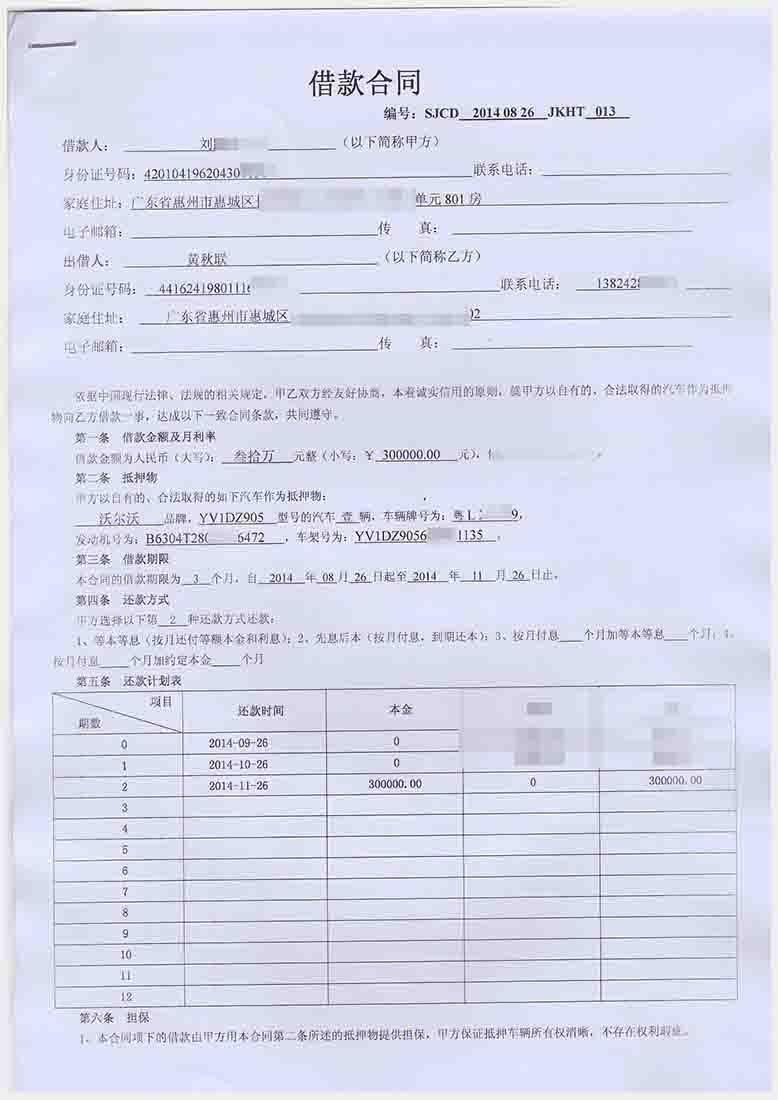 借款合同
编号：SJCD 2014 08 26 JKHT 013
借款人： 刘 （以下简称甲方）
身份证号码：42010419620430 联系电话：
家庭住址：广东省惠州市惠城区 单元 801 房
电子邮箱： 传 真：
出借人： 黄秋联 （以下简称乙方）
身份证号码： 441624198011 联系电话： 138242
家庭住址： 广东省惠州市惠城区 02
电子邮箱： 传 真：
依据中国现行法律、法规的相关规定，甲乙双方经友好协商，本着诚实信用的原则，就甲方以自有的、合法取得的汽车作为抵押
物向乙方借款一事，达成以下一致合同条款，共同遵守。
第一条 借款金额及月利率
借款金额为人民币（大写）： 叁拾万 元整（小写：￥ 300000.00 元），
第二条 抵押物
甲方以自有的、合法取得的如下汽车作为抵押物：
沃尔沃 品牌，YV1DZ905 型号的汽车 壹 辆，车辆牌号为：粤L 9，
发动机号为：B6304T28 6472 ，车架号为：YV1DZ9056 1135 。
第三条 借款期限
本合同的借款期限为 3 个月，自 2014 年 08 月 26 日起至 2014 年 11 月 26 日止。
第四条 还款方式
甲方选择以下第 2 种还款方式还款：
1、等本等息（按月还付等额本金和利息）；2、先息后本（按月付息，到期还本）；3、按月付息 个月加等本等息 个月；4、
按月付息 个月加约定本金 个月
第五条 还款计划表
项目
期数 还款时间 本金
0 2014-09-26 0
1 2014-10-26 0
2 2014-11-26 300000.00 0 300000.00
3
4
5
6
7
8
9
10
11
12
第六条 担保
1、本合同项下的借款由甲方用本合同第二条所述的抵押物提供担保，甲方保证抵押车辆所有权清晰，不存在权利瑕疵。